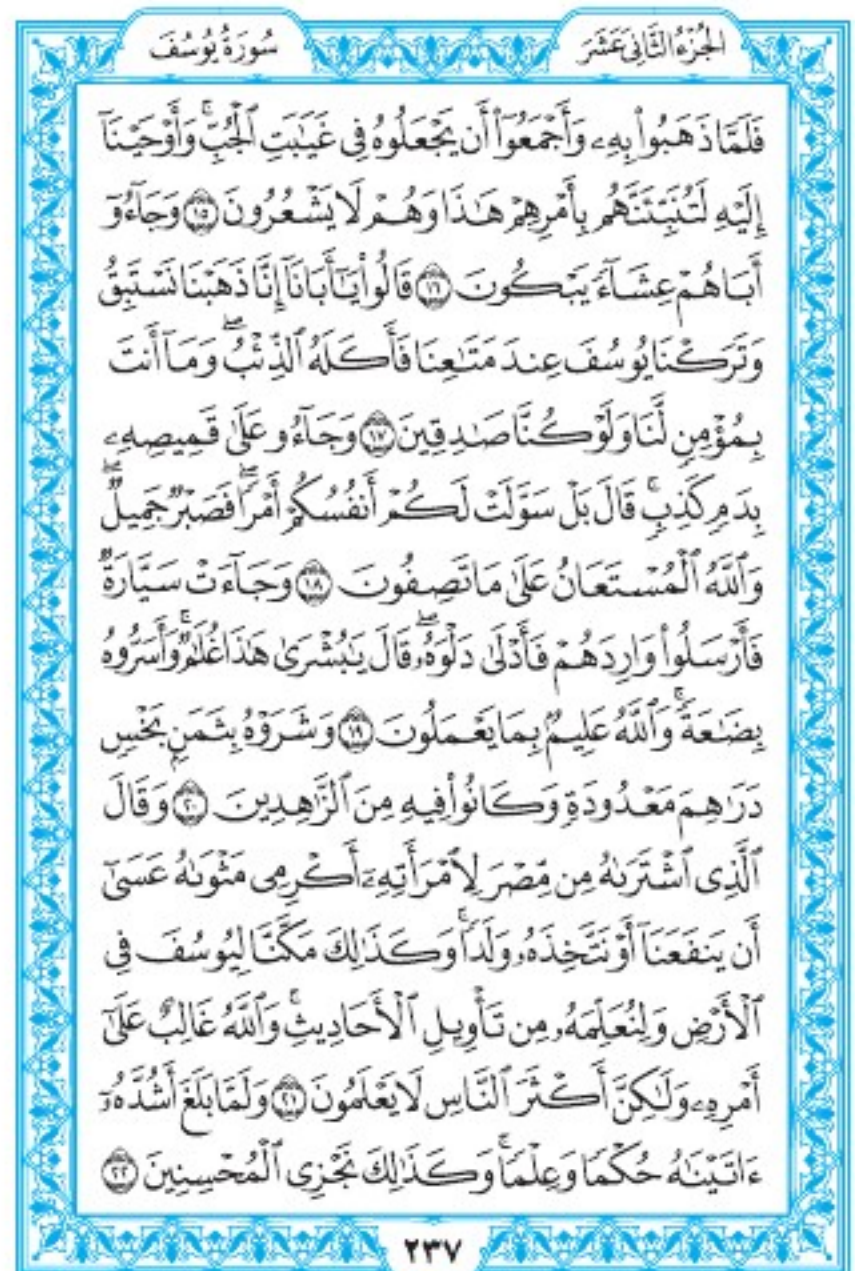 الجُزْءُ الثَّانِيَ عَشَرَ
سُورَةُ يُوسُفَ
فَلَمَّا ذَهَبُواْ بِهِۦ وَأَجۡمَعُوٓاْ أَن يَجۡعَلُوهُ فِي غَيَٰبَتِ ٱلۡجُبِّۚ وَأَوۡحَيۡنَآ
إِلَيۡهِ لَتُنَبِّئَنَّهُم بِأَمۡرِهِمۡ هَٰذَا وَهُمۡ لَا يَشۡعُرُونَ ١٥ وَجَآءُوٓ
أَبَاهُمۡ عِشَآءٗ يَبۡكُونَ ١٦ قَالُواْ يَٰٓأَبَانَآ إِنَّا ذَهَبۡنَا نَسۡتَبِقُ
وَتَرَكۡنَا يُوسُفَ عِندَ مَتَٰعِنَا فَأَكَلَهُ ٱلذِّئۡبُۖ وَمَآ أَنتَ
بِمُؤۡمِنٖ لَّنَا وَلَوۡ كُنَّا صَٰدِقِينَ ١٧ وَجَآءُو عَلَىٰ قَمِيصِهِۦ
بِدَمٖ كَذِبٖۚ قَالَ بَلۡ سَوَّلَتۡ لَكُمۡ أَنفُسُكُمۡ أَمۡرٗاۖ فَصَبۡرٞ جَمِيلٞۖ
وَٱللَّهُ ٱلۡمُسۡتَعَانُ عَلَىٰ مَا تَصِفُونَ ١٨ وَجَآءَتۡ سَيَّارَةٞ
فَأَرۡسَلُواْ وَارِدَهُمۡ فَأَدۡلَىٰ دَلۡوَهُۥۖ قَالَ يَٰبُشۡرَىٰ هَٰذَا غُلَٰمٞۚ وَأَسَرُّوهُ
بِضَٰعَةٗۚ وَٱللَّهُ عَلِيمُۢ بِمَا يَعۡمَلُونَ ١٩ وَشَرَوۡهُ بِثَمَنِۭ بَخۡسٖ
دَرَٰهِمَ مَعۡدُودَةٖ وَكَانُواْ فِيهِ مِنَ ٱلزَّٰهِدِينَ ٢٠ وَقَالَ
ٱلَّذِي ٱشۡتَرَىٰهُ مِن مِّصۡرَ لِٱمۡرَأَتِهِۦٓ أَكۡرِمِي مَثۡوَىٰهُ عَسَىٰٓ
أَن يَنفَعَنَآ أَوۡ نَتَّخِذَهُۥ وَلَدٗاۚ وَكَذَٰلِكَ مَكَّنَّا لِيُوسُفَ فِي
ٱلۡأَرۡضِ وَلِنُعَلِّمَهُۥ مِن تَأۡوِيلِ ٱلۡأَحَادِيثِۚ وَٱللَّهُ غَالِبٌ عَلَىٰٓ
أَمۡرِهِۦ وَلَٰكِنَّ أَكۡثَرَ ٱلنَّاسِ لَا يَعۡلَمُونَ ٢١ وَلَمَّا بَلَغَ أَشُدَّهُۥٓ
ءَاتَيۡنَٰهُ حُكۡمٗا وَعِلۡمٗاۚ وَكَذَٰلِكَ نَجۡزِي ٱلۡمُحۡسِنِينَ ٢٢
٢٣٧